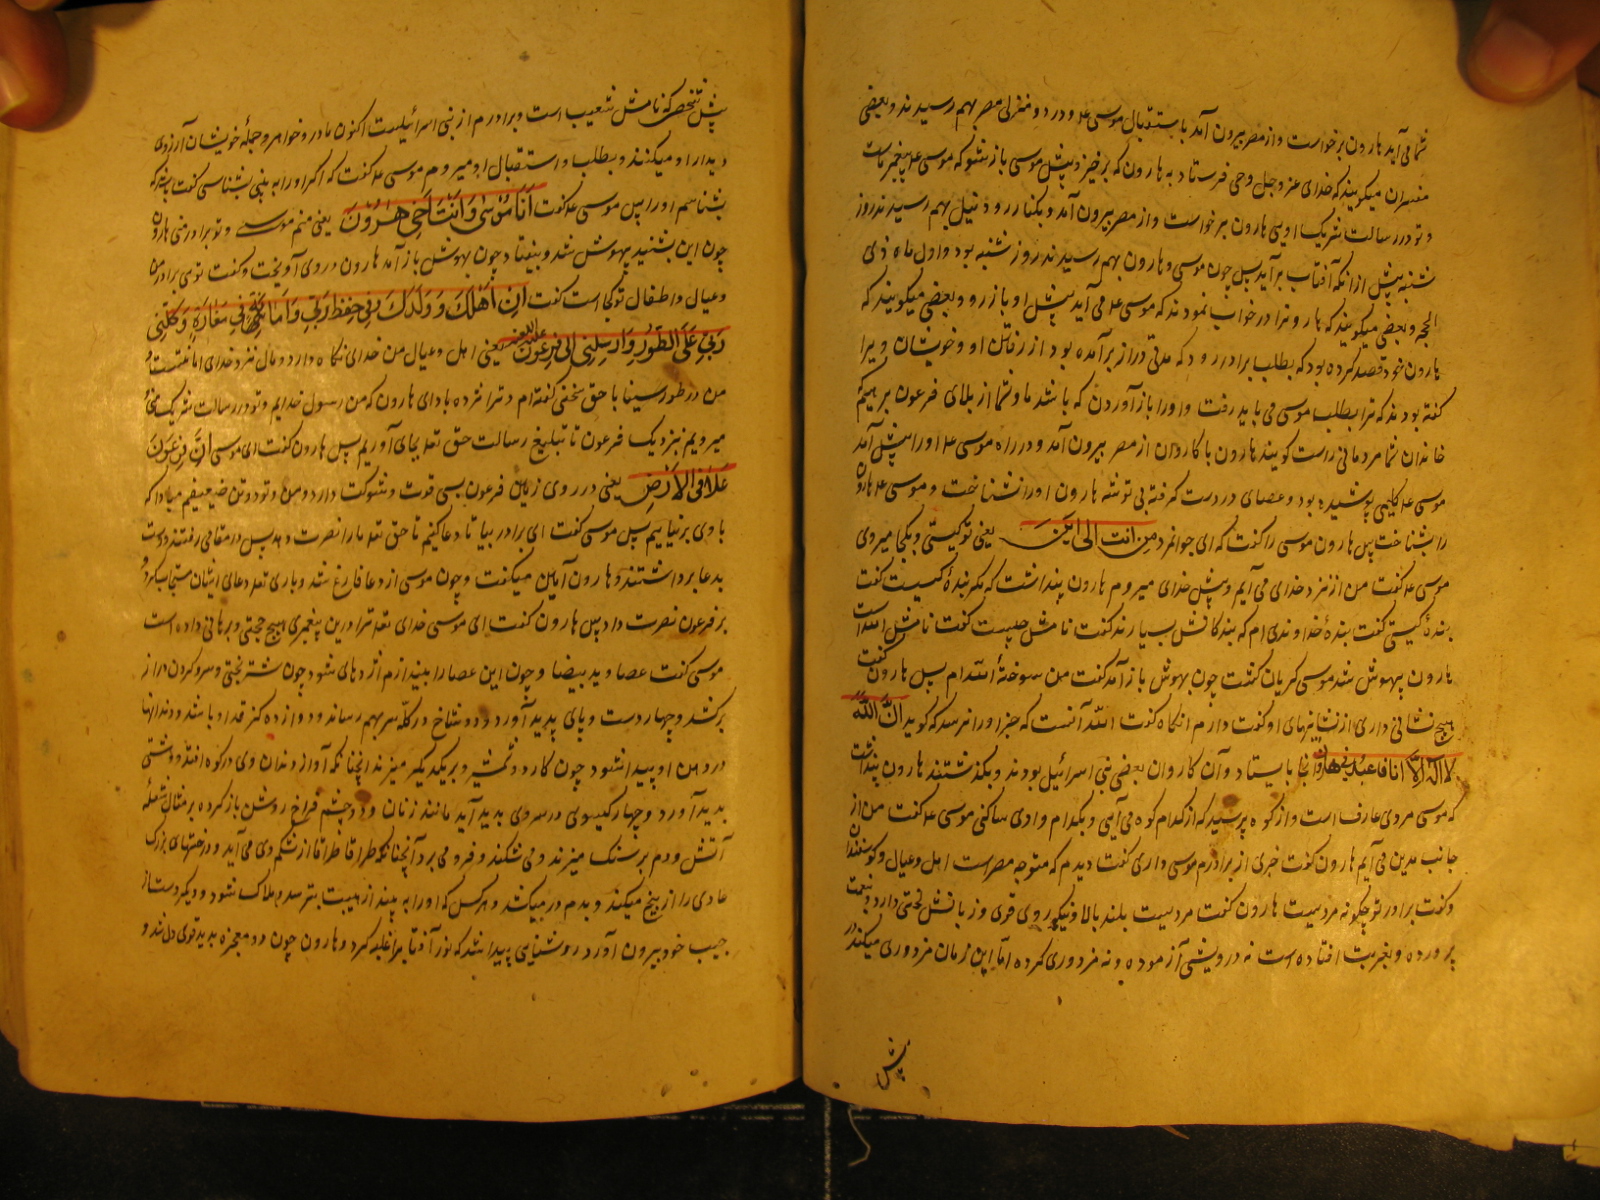 شما می آید هارون برخواست و از مصر بیرون آمد باستقبال موسی ع و در دو منزلی مصر بهم رسیدند و بعضی
مفسران میگویند که خدای عز و جل وحی فرستاد به هارون که برخیز و پیش موسی باز شو که موسی ع پیغمبر ماست
و تو در رسالت شریک اویی هارون برخواست و از مصر بیرون آمد و بکنار رود نیل بهم رسیدند روز
شنبه پیش از انکه آفتاب برآید پس چون موسی و هارون بهم رسیدند روز شنبه بود و اول ماه ذی
الحجه و بعضی میگویند که هارونرا در خواب نمودند که موسی ع می آید پیش او باز رو و بعضی میگویند که
هارون خود قصد کرده بود که بطلب برادر رود که مدتی دراز برآمده بود از رفتن او و خویشان ویرا
گفته بودند که ترا بطلب موسی می باید رفت و او را باز آوردن که باشد ما و شما از بلای فرعون برهیم
خاندان شما مردمانی راست گویند هارون با کاروان از مصر بیرون آمد و در راه موسی ع او را پیش آمد
موسی ع گلیمی پوشیده بود و عصای در دست گرفته بی توشه هارون او را نشناخت و موسی ع هارون
را بشناخت پس هارون موسی را گفت که ای جوانمرد من انت الی این یعنی تو کیستی و بکجا میروی
موسی ع گفت من از نزد خدای می آیم و پیش خدای میروم هارون پنداشت که مگر بندهٔ کسیست گفت
بندهٔ کیستی گفت بندهٔ خداوندی ام که بندکانش بسیارند گفت نامش چیست گفت نامش الله است
هارون بیهوش شد موسی گریان گشت چون بهوش باز آمد گفت من سوختهٔ الله ام پس هارون گفت
هیچ نشانی داری از نشانیهای او گفت دارم انگاه گفت الله آنست که جز او را نرسد که گوید اننی انا الله
لا اله الا انا فاعبدنی هارون آنجا بایستاد و آن کاروان بعضی بنی اسرائیل بودند و بگذشتند هارون پنداشت
که موسی مردی عارف است و از کوه پرسید که از کدام کوه می آیی و بکدام وادی ساکنی موسی ع گفت من از
جانب مدین می آیم هارون گفت خبری از برادرم موسی داری گفت دیدم که متوجه مصر است اهل و عیال و گوسفندان
و گفت برادر تو چگونه مردیست هارون گفت مردیست بلند بالا و نیکو روی قوی و زبانش لختی دارد و بنعمت
پرورده و بغربت افتاده است نه درویشی آزموده و نه مزدوری کرده اما این زمان مزدوری میکند
پیش
پیش شخص که نامش شعیب است و برادرم از بنی اسرائیلست اکنون مادر و خواهر و جملهٔ خویشان آرزوی
دیدار او میکنند و بطلب و استقبال او میروم موسی ع گفت که اگر او را به بینی بشناسی گفت
بشناسم او را پس موسی ع گفت اَنَا مُوسٰی وَ اَنْتَ اَخِی هٰرُوْنَ یعنی منم موسی و تو برادر منی هارون
چون این بشنید بیهوش شد و بیفتاد چون بهوش باز آمد هارون در وی آویخت و گفت توی برادر من
و عیال و اطفال تو کجا است گفت اِن اَهْلَکَ وَ وَلَدَکَ فِی حِفْظِ رَبِّی وَ اَمَّا فِی مَغَارَةٍ وَ کَلَّمَنِی
رَبِّی عَلَی الطُّوْرِ وَ اَرْسَلَنِی اِلٰی فِرْعَوْنَ علیه اللعنه یعنی اهل و عیال من خدای نگاه دارد و مال نزد خدای امانتست و
من در طور سینا با حق سخن گفته ام و ترا مژده باد ای هارون که من رسول خدایم و تو در رسالت شریک منی
میرویم نزدیک فرعون تا تبلیغ رسالت حق تعه بجای آوریم پس هارون گفت ای موسی اِنَّ فِرْعَوْنَ
عَلَا فِی الْاَرْضِ یعنی در روی زمین فرعون بسی قوت و شوکت دارد و من و تو دو تن ضعیفیم مبادا که
با وی برنیاییم پس موسی گفت ای برادر بیا تا دعا کنیم تا حق تعه ما را نصرت دهد پس در مقامی رفتند و دست
بدعا برداشتند و هارون آمین میگفت و چون موسی از دعا فارغ شد و باری تعه دعای ایشان مستجاب کرد و
بر فرعون نصرت داد پس هارون گفت ای موسی خدای تعه ترا در این پیغمبری هیچ حجتی و برهانی داده است
موسی گفت عصا و ید بیضا و چون این عصا را بیندازم اژدهای شود چون شتر بختی و سر و گردن دراز
برکشد و چهار دست و پای پدید آورد و دو شاخ در کله سر بهم رساند و دوازده گز قد او باشد و دندانها
در دهن او پیدا شود چون کارد و شمشیر و بر یکدیگر میزند انچنانکه آواز دندان وی در کوه افتد و دشتی
پدید آورد و چهار گیسوی در سر وی بدید آید مانند زنان و دو چشم فراخ روشن باز کرده بر مثال شعلهٔ
آتش و دم بر سنگ میزند و می شکند و فرو می برد آنچنانکه طراقا طراق از شکم وی می آید و درختهای بزرگ
عادی را از بیخ میکند و بدم در میکشد و هر کس که او را به بیند از هیبت بترسد و هلاک شود و دیگر دست از
جیب خود بیرون آورد روشنایی پیدا شد که نور آفتاب را غلبه کرد و هارون چون دو معجزه بدید قوی دل شد و